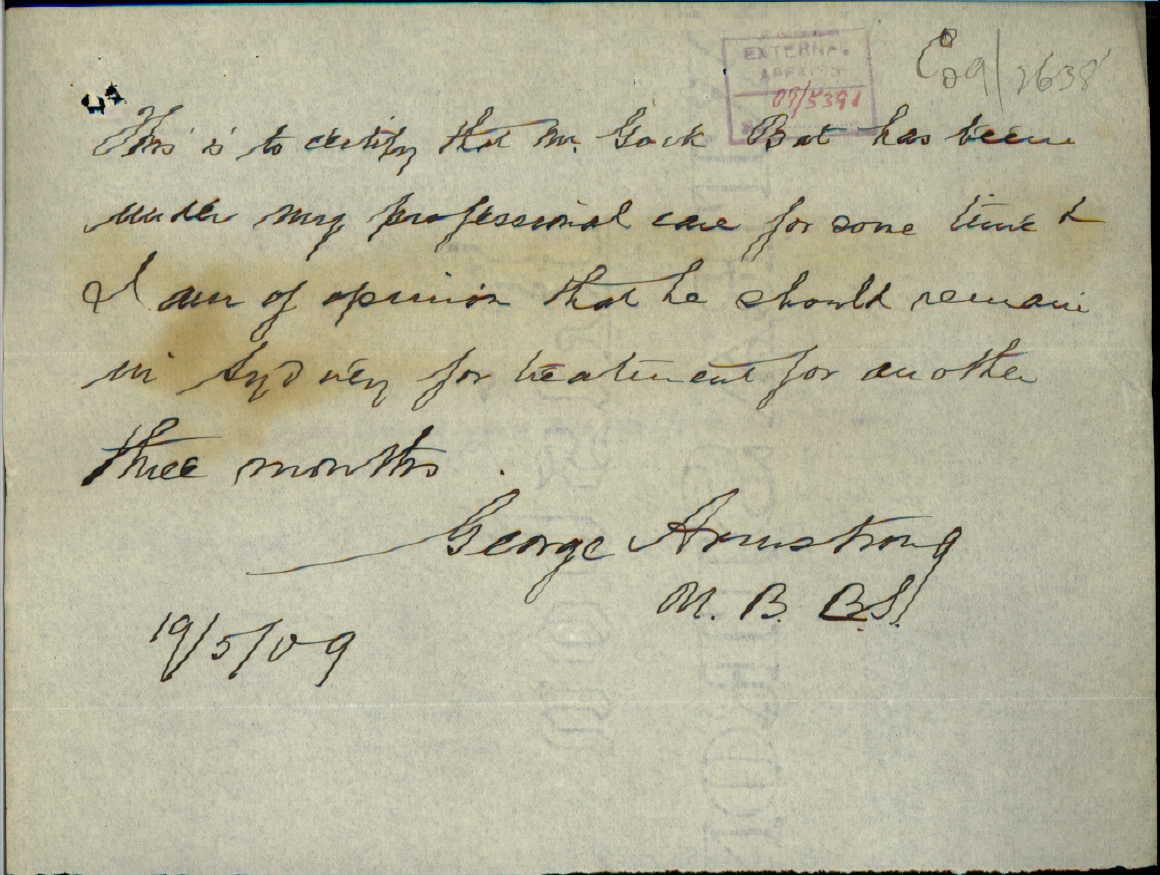 E 09/2638
EXTERNAL
AFFAIRS
09/5391
This is to certify that Mr. Gock Bat has been
under my professional care for some time &
I am of opinion that he should remain
in Sydney for treatment for another
three months.
George Armstrong
M. B. B.S.
19/5/09